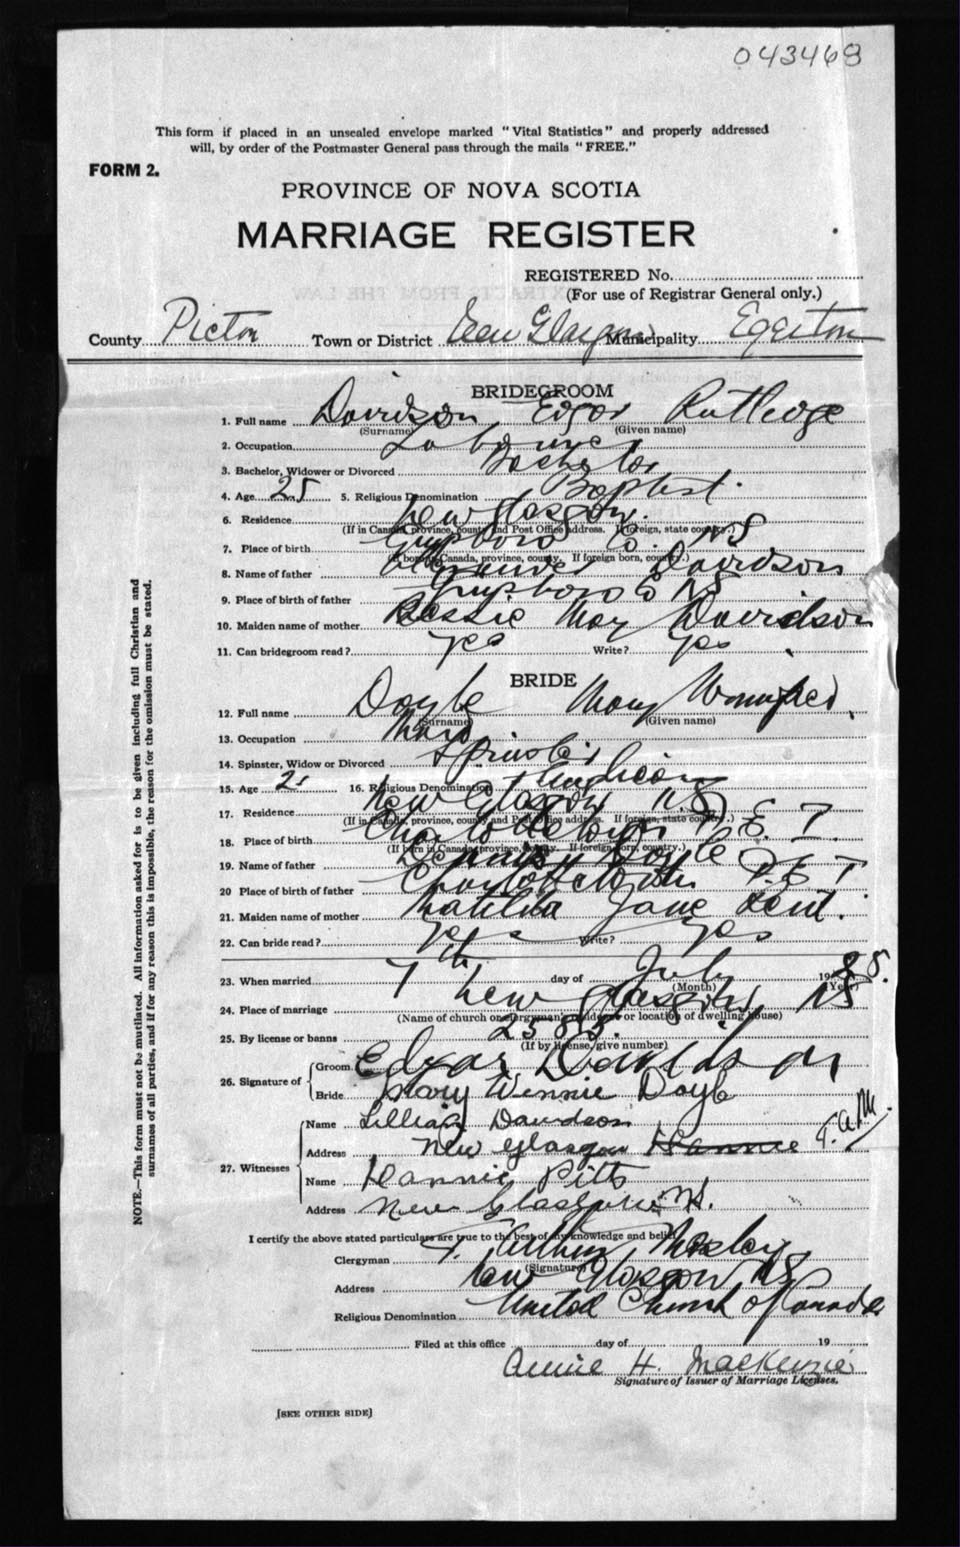 043469
This form if placed in an unsealed envelope marked "Vital Statistics" and properly addressed
will, by order of the Postmaster General pass through the mails "FREE."
FORM 2.
PROVINCE OF NOVA SCOTIA
MARRIAGE REGISTER
REGISTERED No.
(For use of Registrar General only.)
County Pictou Town or District New Glasgow Municipality Egerton
BRIDEGROOM
1. Full name Davidson Edgar Rutledge
(Surname) (Given name)
2. Occupation Labourer
3. Bachelor, Widower or Divorced Bachelor
4. Age 25 5. Religious Denomination Baptist.
6. Residence New Glasgow.
(If in Canada, province, county and Post Office address. If foreign, state country.)
7. Place of birth Guysboro Co. NS
(If born in Canada, province, county. If foreign born, country.)
8. Name of father Davidson
9. Place of birth of father Guysboro Co NS
10. Maiden name of mother Bessie May Davidson
11. Can bridegroom read? Yes Write? Yes
BRIDE
12. Full name Doyle Mary Winnifred
(Surname) (Given name)
13. Occupation Maid
14. Spinster, Widow or Divorced Spinster
15. Age 21 16. Religious Denomination Anglican
17. Residence New Glasgow N.S
(If in Canada, province, county and Post Office address. If foreign, state country.)
18. Place of birth Charlottetown P.E.I.
(If born in Canada, province, county. If foreign born, country.)
19. Name of father Dennis Doyle
20 Place of birth of father Charlottetown P.E.I
21. Maiden name of mother Matilda Jane Kent.
22. Can bride read? Yes Write? Yes
23. When married 7th day of July 19
(Month) (Year)
24. Place of marriage New Glasgow NS
(Name of church or clergyman's residence or location of dwelling house)
25. By license or banns 2585.
(If by license, give number)
26. Signature of
Groom Edgar Davidson
Bride Mary Winnie Doyle
27. Witnesses
Name Lillian Davidson
Address New Glasgow Hannie T.A.M.
Name Hannie Pitts
Address New Glasgow N.S.
I certify the above stated particulars are true to the best of my knowledge and belief
Clergyman T. Arthur
(Signature)
Address New Glasgow NS
Religious Denomination United Church of Canada
Filed at this office day of 19
Annie H. MacKenzie
Signature of Issuer of Marriage Licenses.
[SEE OTHER SIDE]
NOTE.—This form must not be mutilated. All information asked for is to be given including full Christian and
surnames of all parties, and if for any reason this is impossible, the reason for the omission must be stated.